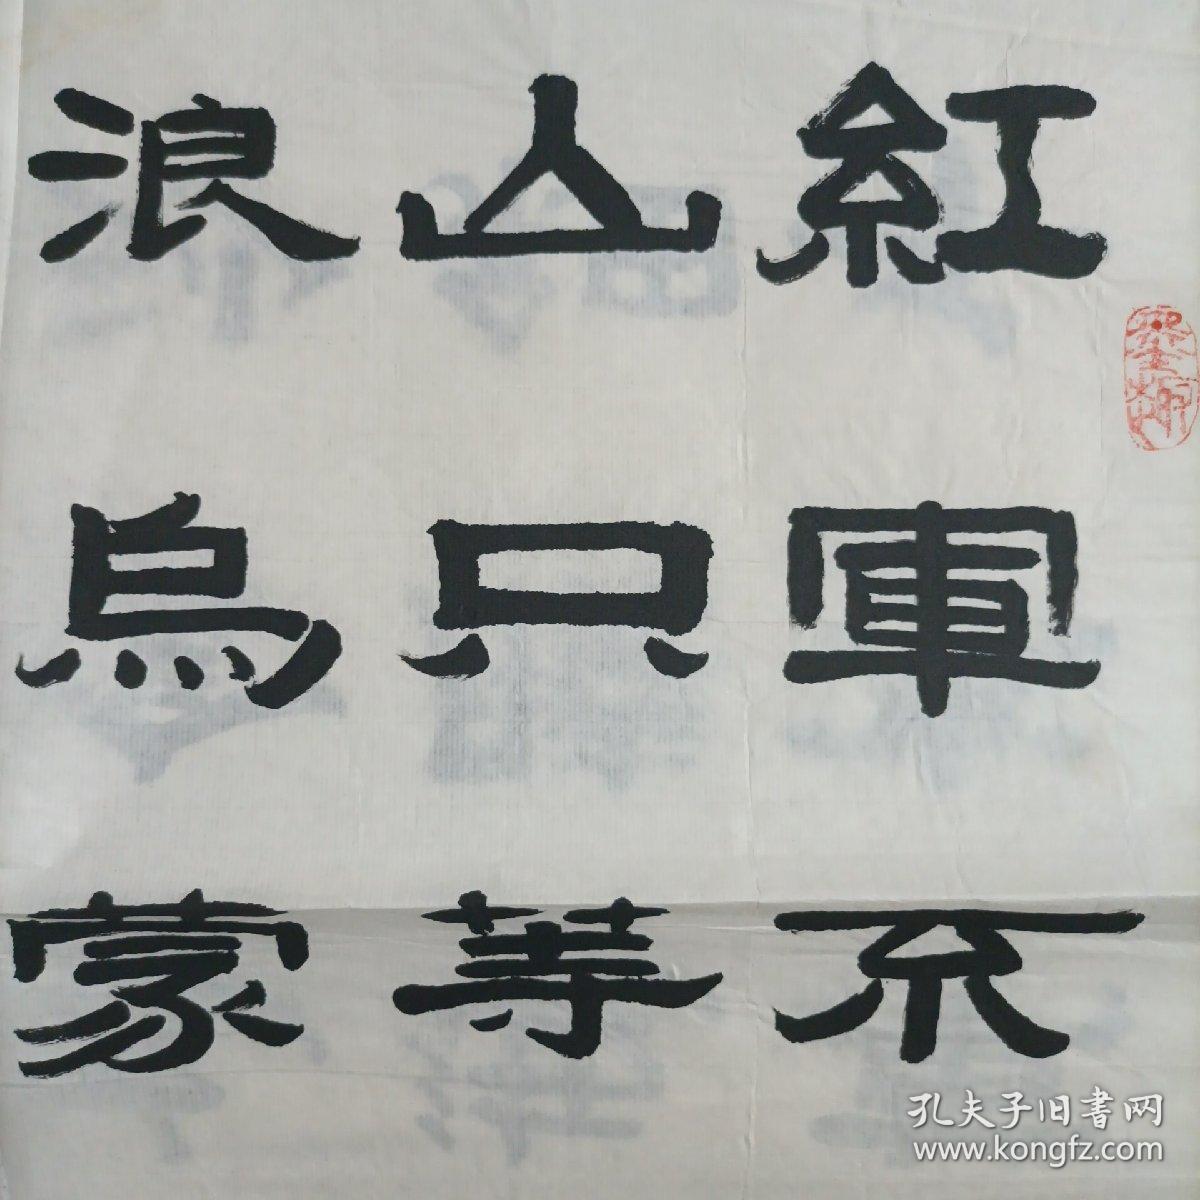 紅軍不
山只等
浪烏蒙
墨趣
孔夫子旧書网
www.kongfz.com